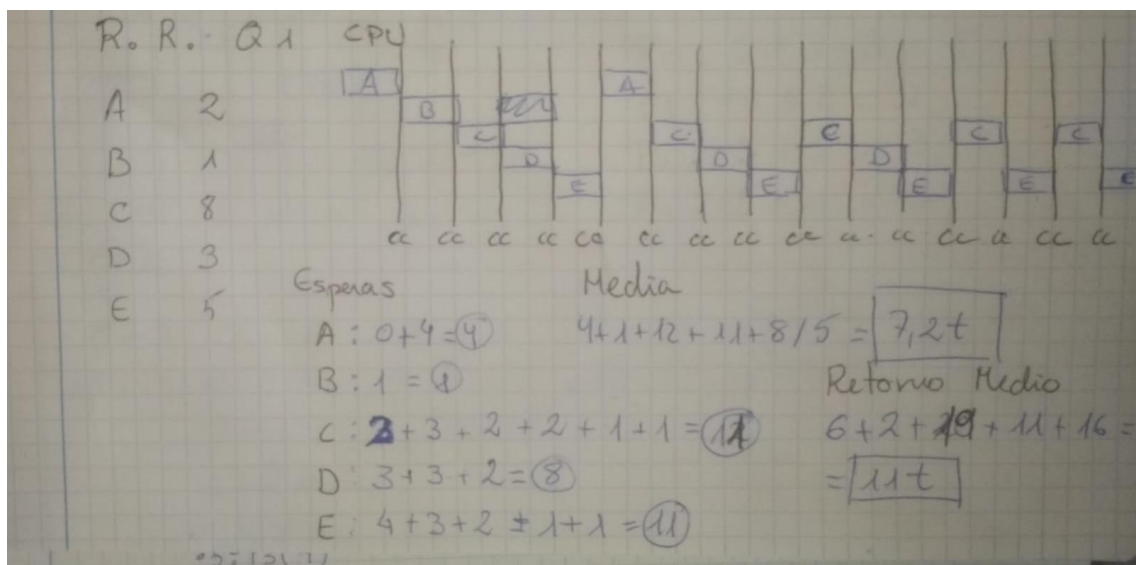 R. R. Q 1 CPU
A 2
B 1
C 8
D 3
E 5
A A
B
C C C C C
D D D
E E E E E
cc cc cc cc cc cc cc cc cc cc cc cc cc cc cc
Esperas
A: 0+4=4
B: 1 = 1
C: 2+3+2+2+1+1=11
D: 3+3+2=8
E: 4+3+2+1+1=11
Media
4+1+12+11+8/5 = 7,2t
Retorno Medio
6+2+19+11+16=
= 11t